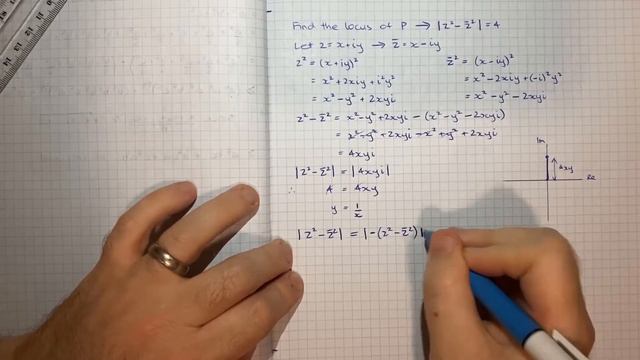 Find the locus of P → |z² - z̄²| = 4
Let z = x + iy → z̄ = x - iy
z² = (x + iy)²
= x² + 2xiy + i²y²
= x² - y² + 2xyi
z̄² = (x - iy)²
= x² - 2xiy + (-i)²y²
= x² - y² - 2xyi
z² - z̄² = x² - y² + 2xyi - (x² - y² - 2xyi)
= x² - y² + 2xyi - x² + y² + 2xyi
= 4xyi
|z² - z̄²| = |4xyi|
∴ 4 = 4xy
y = 1/x
|z² - z̄²| = |-(z² - z̄²)|
Im
4xy
Re